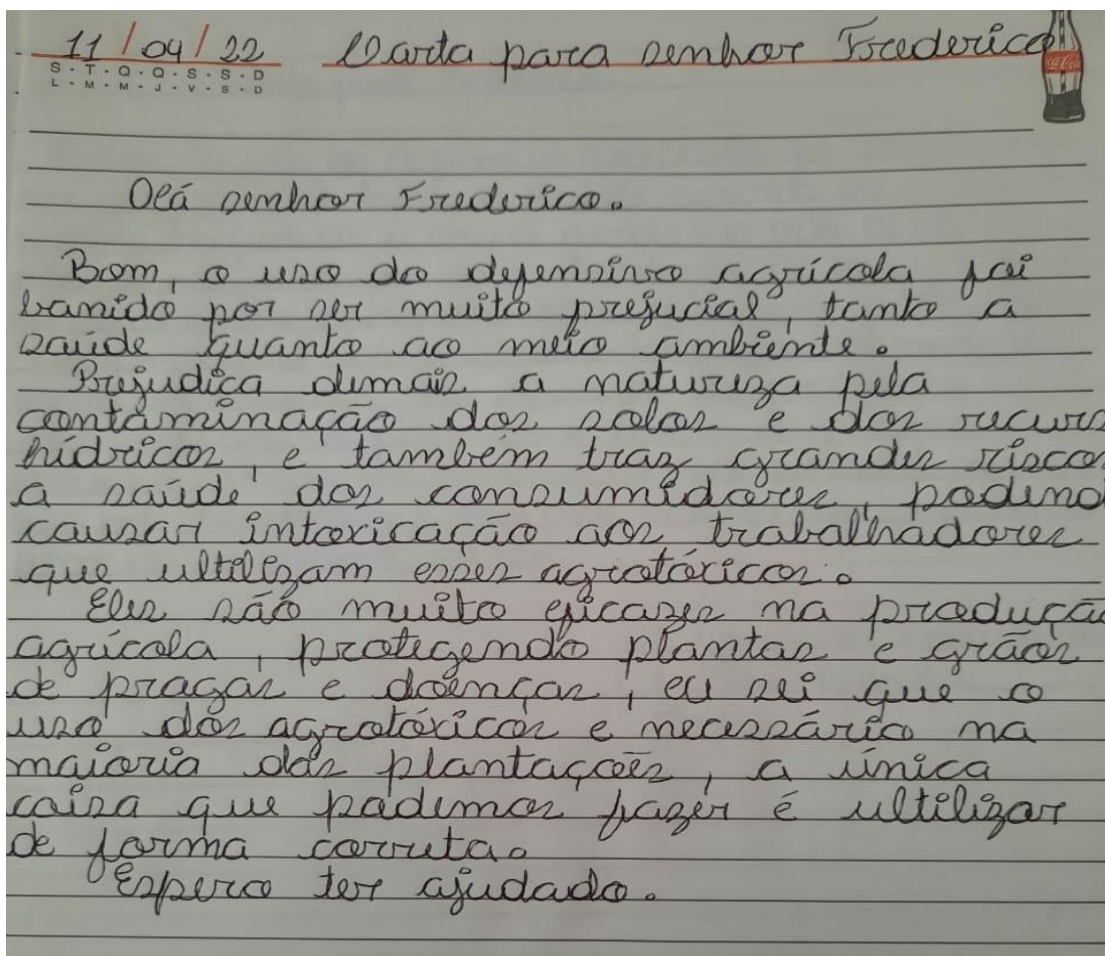 11/04/22 Carta para senhor Frederico
S · T · Q · Q · S · S · D
L · M · M · J · V · S · D
Coca-Cola
Olá senhor Frederico.
Bom, o uso do defensivo agrícola foi
banido por ser muito prejucial, tanto a
saúde quanto ao meio ambiente.
Prejudica demais a natureza pela
contaminação dos solos e dos recurs
hídricos, e também traz grandes riscos
a saúde dos consumidores, podend
causar intoxicação aos trabalhadores
que ultilizam esses agrotóxicos.
Eles são muito eficazes na produçã
agrícola, protegendo plantas e grãos
de pragas e doenças, eu sei que o
uso dos agrotóxicos e necessário na
maioria das plantações, a única
coisa que podemos fazer é ultilizar
de forma correta.
Espero ter ajudado.